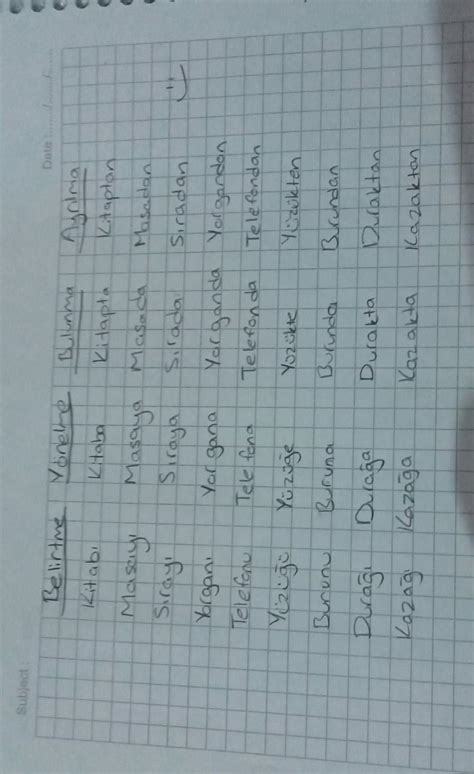 Subject :
Date : ....../....../......
Belirtme Yönelme Bulunma Ayrılma
Kitabı Kitaba Kitapta Kitaptan
Masayı Masaya Masada Masadan
Sırayı Sıraya Sırada Sıradan
Yorganı Yorgana Yorganda Yorgandan
Telefonu Telefona Telefonda Telefondan
Yüzüğü Yüzüğe Yüzükte Yüzükten
Burunu Buruna Burunda Burundan
Durağı Durağa Durakta Duraktan
Kazağı Kazağa Kazakta Kazaktan